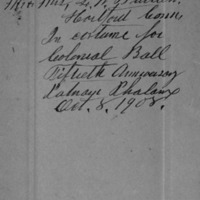 Mr. & Mrs.
Hartford Conn.
In costume for
Colonial Ball
Fiftieth Anniversary
Putnam Phalanx
Oct. 8, 1908.